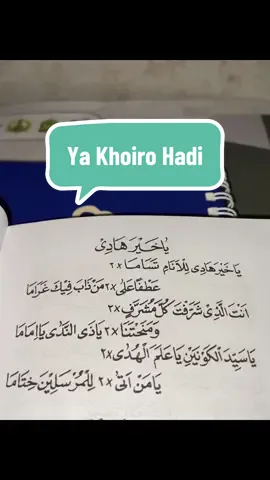 Ya Khoiro Hadi
يَاخَيْرَ هَادِيْ
يَاخَيْرَ هَادِى لِلْاَنَامِ تَسَامَا ×٢
عَطْفًا عَلَى ×٢ مَنْ ذَابَ فِيْكَ غَرَامَا
اَنْتَ الَّذِيْ شَرَّفْتَ كُلَّ مُشَرَّفٍ ×٢
وَمَنَحْتَنَا ×٢ يَاذَى النَّدٰى يَااِمَامَا
يَاسَيِّدَ الْكَوْنَيْنِ يَاعَلَمَ الْهُدٰى ×٢
يَامَنْ اَتٰى ×٢ لِلْمُرْسَلِيْنَ خِتَامَا